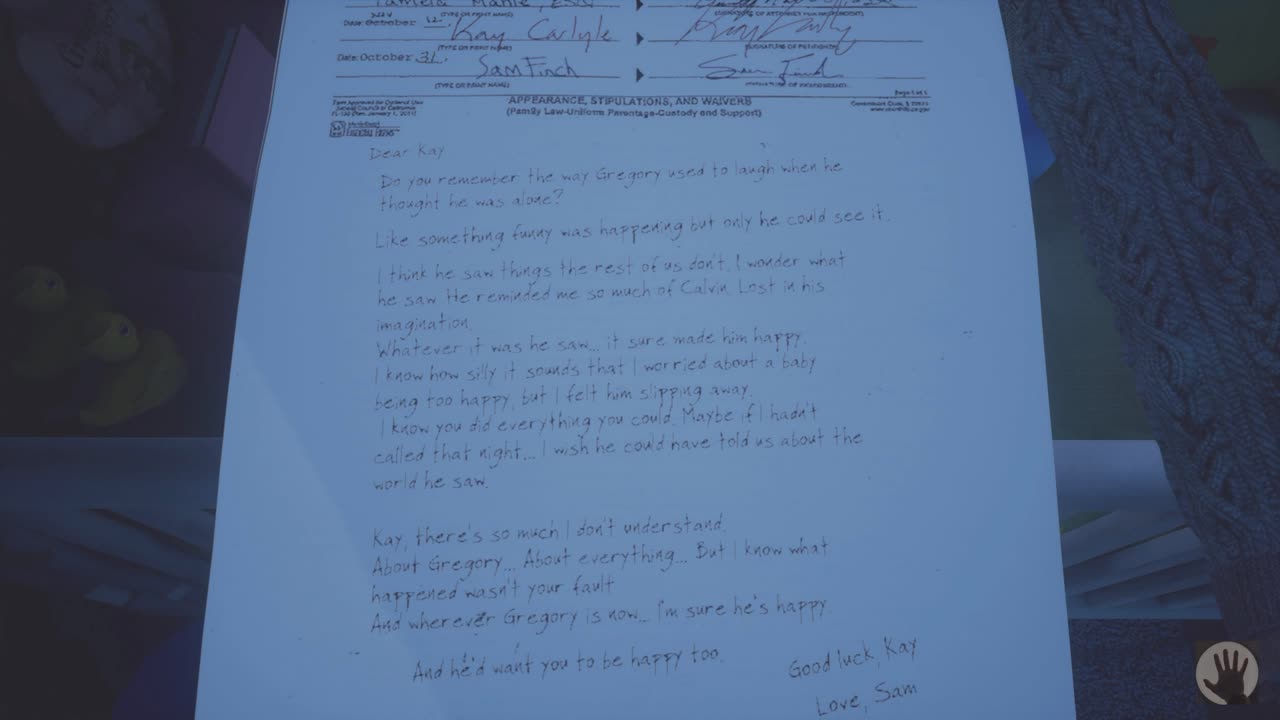 (TYPE OR PRINT NAME)
Kay Carlyle
(TYPE OR PRINT NAME)
Date: October 31.
Sam Finch
(TYPE OR PRINT NAME)
APPEARANCE, STIPULATIONS, AND WAIVERS
(Family Law-Uniform Parentage-Custody and Support)
Dear Kay
Do you remember the way Gregory used to laugh when he
thought he was alone?
Like something funny was happening but only he could see it.
I think he saw things the rest of us don't. I wonder what
he saw. He reminded me so much of Calvin. Lost in his
imagination.
Whatever it was he saw... it sure made him happy.
I know how silly it sounds that I worried about a baby
being too happy, but I felt him slipping away.
I know you did everything you could. Maybe if I hadn't
called that night... I wish he could have told us about the
world he saw.
Kay, there's so much I don't understand.
About Gregory... About everything... But I know what
happened wasn't your fault
And wherever Gregory is now... I'm sure he's happy.
And he'd want you to be happy too.
Good luck, Kay
Love, Sam